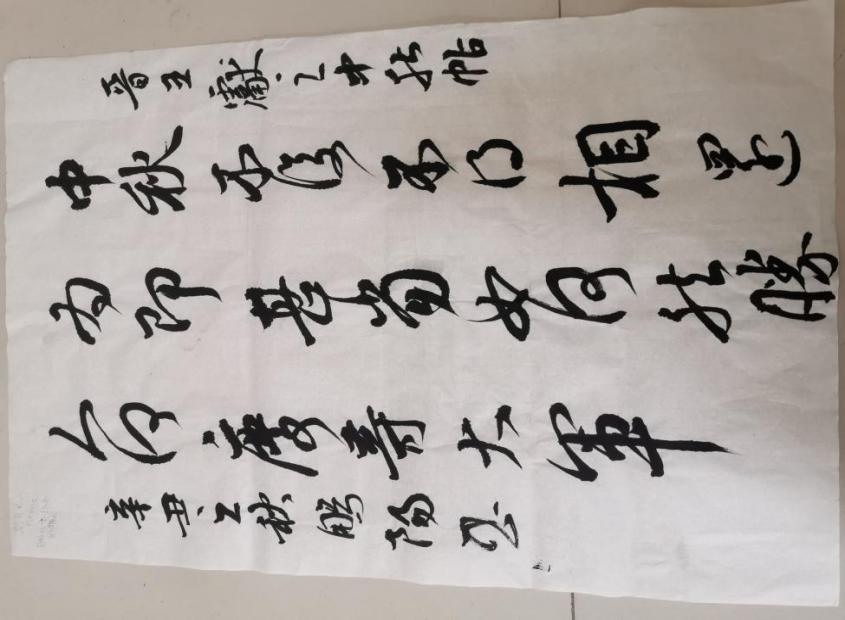 晋王獻之中秋帖
中秋不復不得相還
为即甚省如何然勝
人何慶等大軍
辛丑之秋